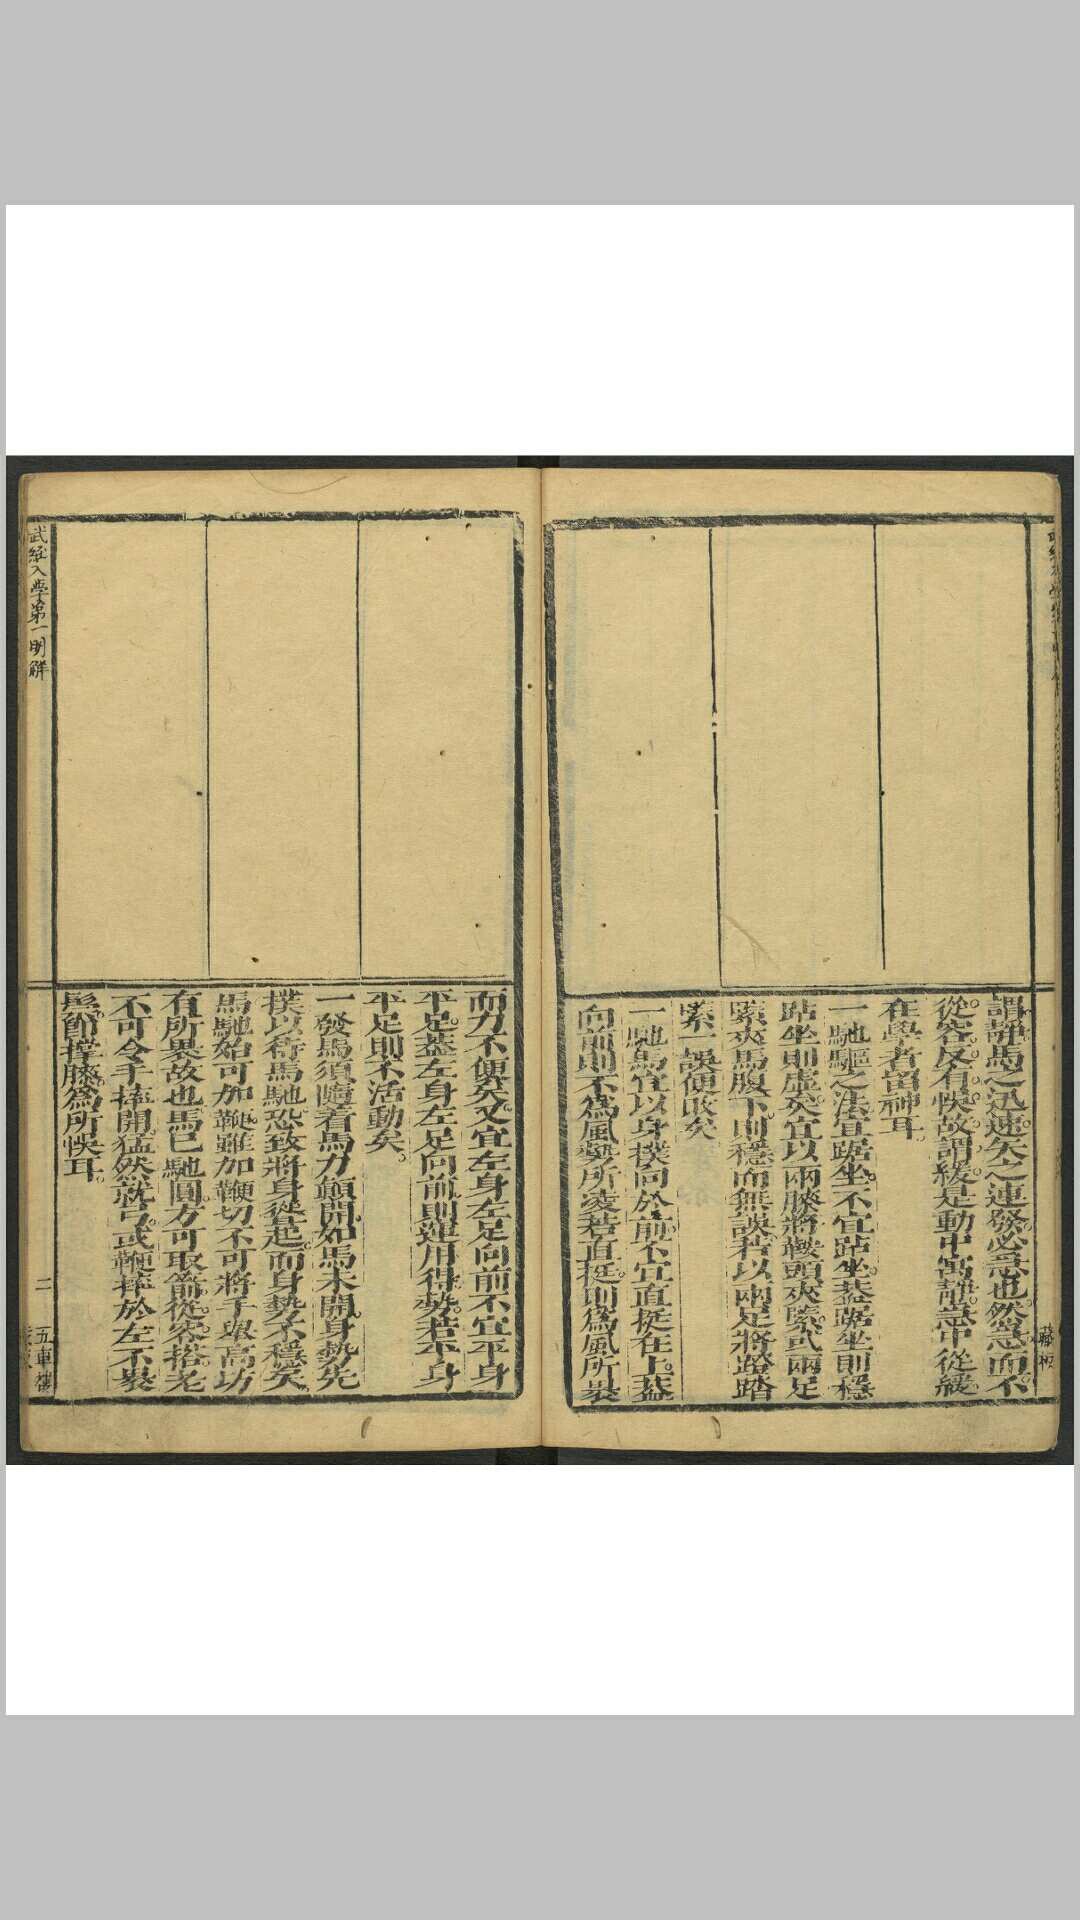 謂靜馬之迅速矢之連發必急也然急而不
從容反有悞故謂緩是動中寓靜急中從緩
在學者留神耳
一馳驅之法宜踞坐不宜跕坐葢踞坐則穩
跕坐則虛矣宜以兩膝將鞍頭夾緊或兩足
緊夾馬腹下則穩而無誤若以兩足將鐙踏
緊一誤便敗矣
一馳馬宜以身撲向於前不宜直挺在上葢
向前則不為風勢所凌若直挺則為風所裊
藏板
而力不便矣又宜左身左足向前不宜平身
平足葢左身左足向前則運用得勢若平身
平足則不活動矣
一發馬須隨着馬力顛開如馬未開身勢先
撲以待馬馳恐致將身聳起而身勢不穩矣
馬馳始可加鞭雖加鞭切不可將手舉高坊
有所畏故也馬已馳圓方可取箭從容搭老
不可令手摔開猛然就弓或鞭摔於左不裊
馬節撐膝為所悞耳
武經入學第一明解
二
五車樓